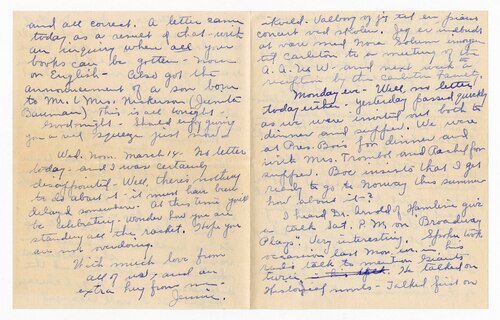 and all correct. A letter came
today as a result of that - with
an inquiry where all your
books can be gotten - now
on English - Also got the
announcement of a son born
to Mr. & Mrs. Nickerson (Junita
Bauman) This is all tonight -
Goodnight - Should enjoy giving
you a real squeeze just now!
Wed. Noon. March 14. No letter
today - and I was certainly
disappointed - Well, there's nothing
to do about it - it must have been
delayed somewhere. At this time you'll
be celebrating - wonder how you are
standing all the racket. Hope you
are not overdoing.
With much love from
all of us, and an
extra hug from me -
Jennie.
kveld. Valborg og jeg til en
concert ved skolen. Jeg er indbudt
at være med Mrs. Holum
til Carleton to a meeting of the
A.A.U.W. - and next week to
reception by the Carleton Faculty.
Monday eve - Well, no letter
today either - Yesterday passed quickly
as we were invited out both to
dinner and supper. We were
at Pres. Boe's for dinner and
with Mrs. Trombor and Raskof for
supper. Boe insists that I get
ready to go to Norway this summer
how about it?
I heard Dr. Arnold of Hamline give
a talk Sat. P.M. on "Broadway
Plays". Very interesting. Spohn took
occasion last Mon. eve. - in his
radio talk to mention Giants
twice. He talked on
Historical novels - Talked first on